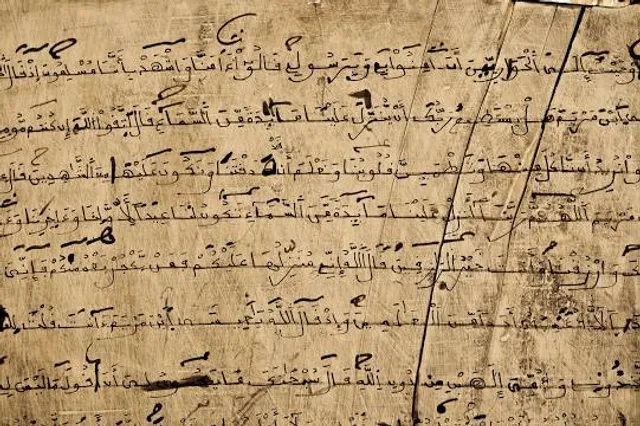 أوحيت إلى الحوارين أن آمنوا بي وبرسولي قالوا ءامنا واشهد بأننا مسلمون إذ قال
ابن مريم هل يستطيع ربك أن ينزل علينا مايدة من السماء قال اتقوا الله إن كنتم مومنين
قالوا نريد أن ناكل منها وتطمين قلوبنا ونعلم أن قد صدقتنا ونكون عليها من الشهدين قال
مريم اللهم ربنا أنزل علينا مايدة من السماء تكون لنا عيدا لأولنا وءاخرنا وءاية
وارزقنا وأنت خير الرزقين قال الله إني منزلها عليكم فمن يكفر بعد منكم فإني
لا أعذبه أحدا من العلمين وإذ قال الله يعيسى ابن مريم ءانت قلت
اتخذوني وأمي إلهين من دون الله قال سبحنك ما يكون لي أن أقول ما ليس لي